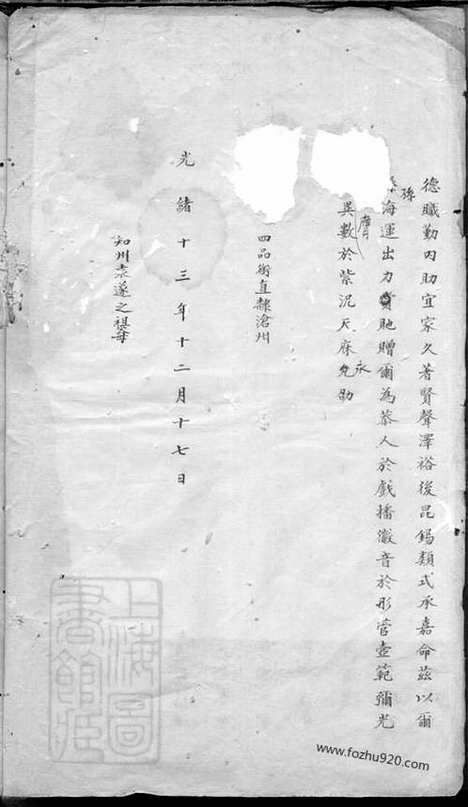 德職勤內助宜家久著賢聲澤裕後昆錫類式承嘉命茲以爾
孫
海運出力貤贈爾為恭人於戲播徽音於彤管壼範彌光
膺
異數於紫泥天庥允劭
永
四品銜直隸滄州
光緒十三年十二月十七日
知州袁遂之祖母
上海圖書館藏
www.fozhu920.com